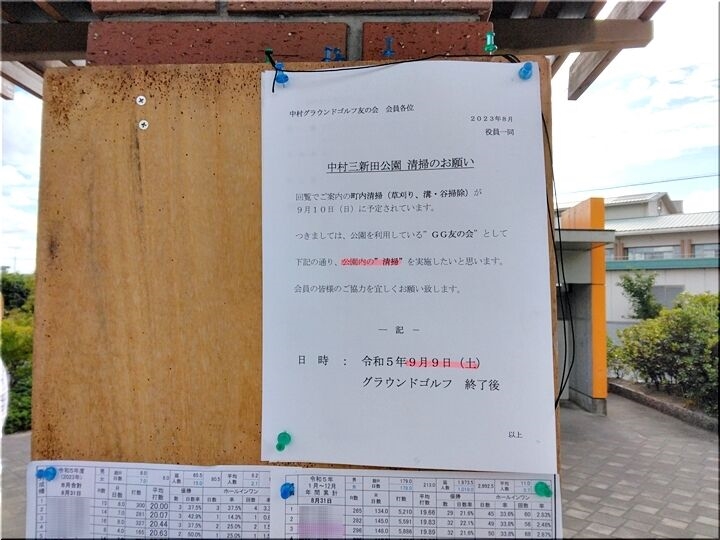 中村グラウンドゴルフ友の会 会員各位
2023年8月
役員一同
中村三新田公園 清掃のお願い
回覧でご案内の町内清掃（草刈り、溝・谷掃除）が
9月10日（日）に予定されています。
つきましては、公園を利用している"GG友の会"として
下記の通り、公園内の"清掃"を実施したいと思います。
会員の皆様のご協力を宜しくお願い致します。
― 記 ―
日 時 : 令和5年9月9日（土）
グラウンドゴルフ 終了後
以上
令和5年度
(2023年)
8月合計
8月31日
平均
打数
優勝
ホールインワン
回数 日数 率 回数 率
19 8.0 300 20.00 3 37.5% 4
14 8.0 327 20.44 3 37.5%
16 8.0 330 20.63 2 25.0%
令和5年
1月～12月
年間累計
8月31日
平均
打数
優勝
ホールインワン
265 134.0 5,210 19.66 29 21.6% 45 33.6% 60 2.83%
292 145.0 5,591 19.83 32 22.1% 49 33.8% 56 2.48%
296 148.0 5,888 19.89 31 20.9%